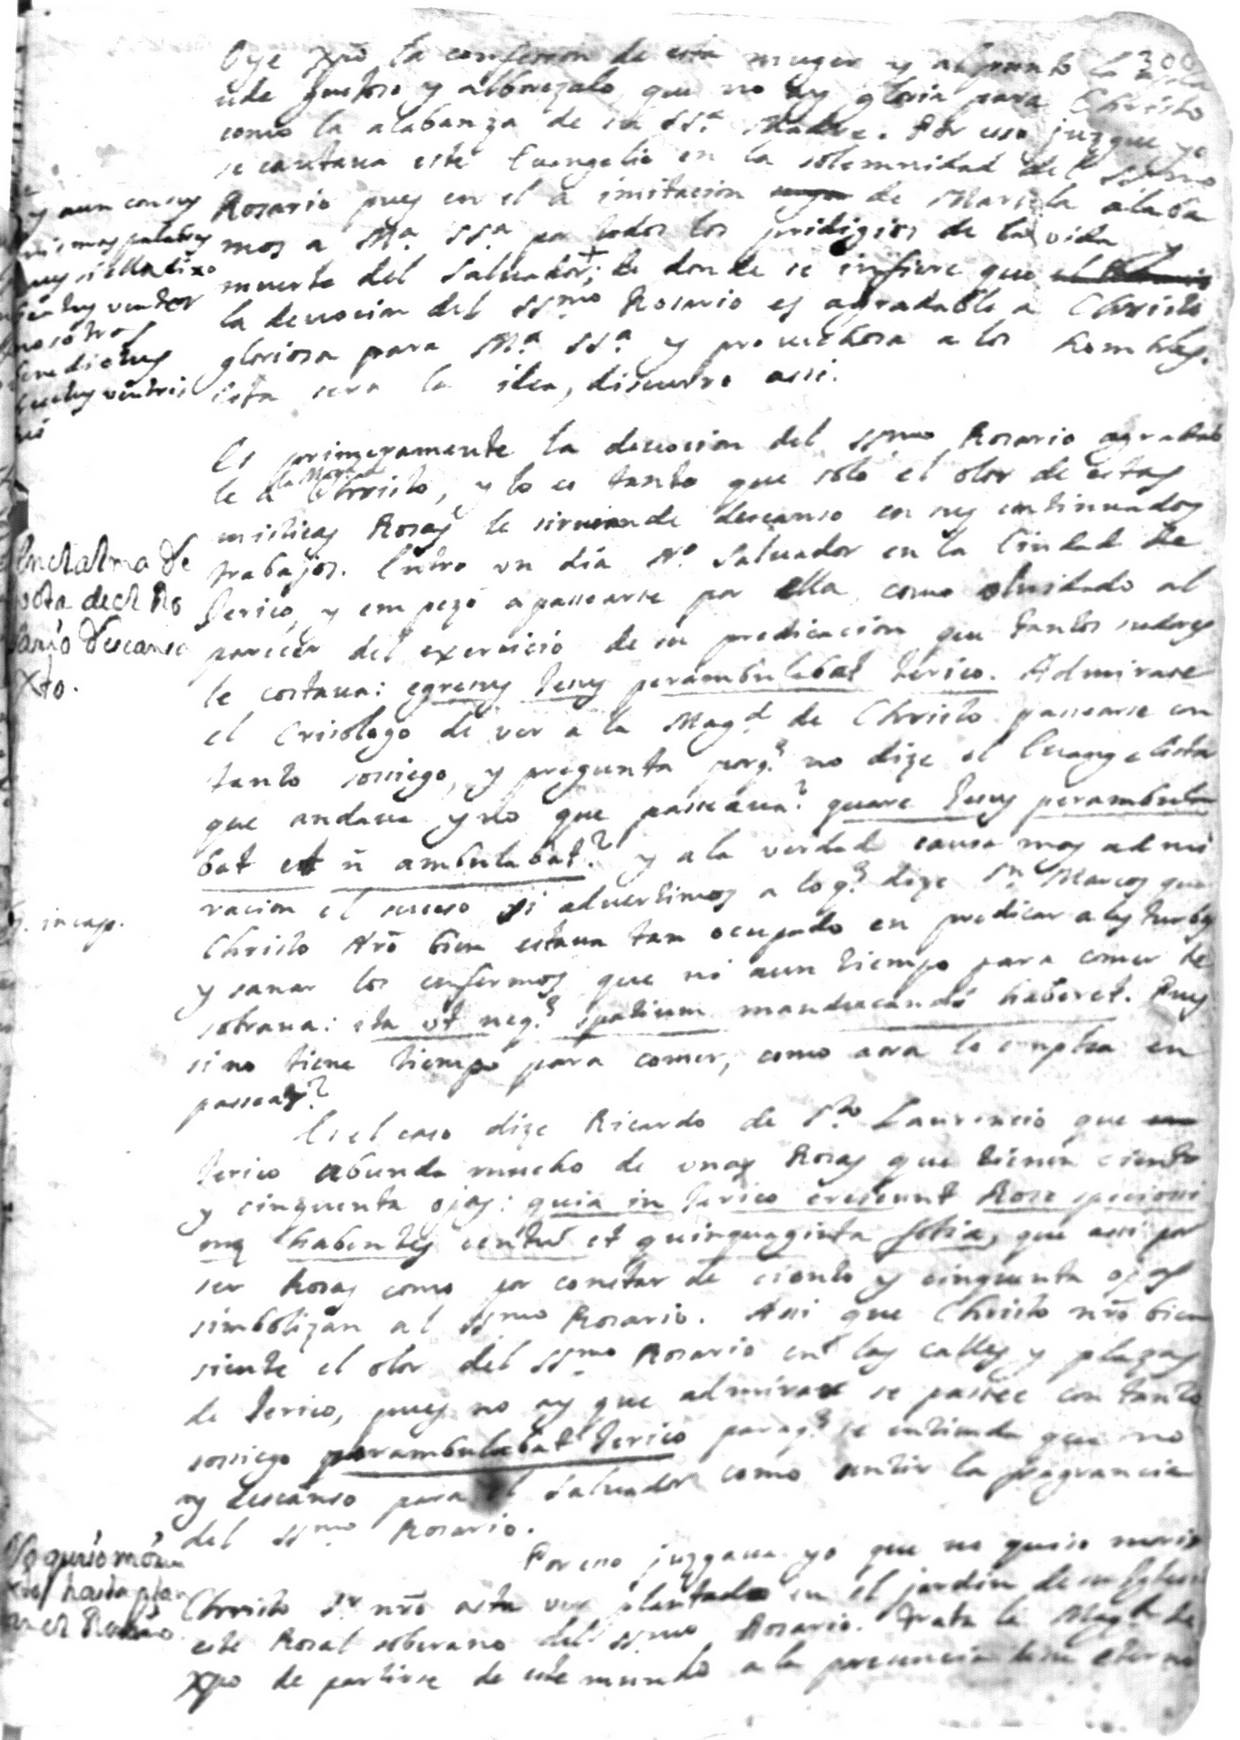 300
Oye Xpõ la confession de esta muger y al punto la
ude gustoso y alborozalo, que no ay gloria para Christo
como la alabanza de su SSª. Madre. Por esso juzgue yo
se cantava este Evangelio en la solemnidad del SSmo
Rosario pues en el a imitacion de Marcela alaba
mos a Mª. SSª. por todos los prodigios de la vida y
muerte del Salvador+; de donde se infiere que
la devocion del SSmo Rosario es agradable a Christo
gloriosa para Mª. SSª. y provechosa a los hombres.
Esta sera la idea, discurro assi.
y aun con sus
mismas palabras
pues si ella dixo
beatus venter
nosotros
benedictus
fructus ventris
Es primeramente la devocion del SSmo. Rosario agradab
le a la Magd. de Christo, y lo es tanto que solo el olor de estas
misticas Rosas le sirve de descanso en sus continuados
trabajos. Entro un dia No. Salvador en la Ciudad de
Jerico, y empezo a passearse por ella, como olvidado al
parecer del exercicio de su predicacion que tantos sudores
le costava: egressus Jesus perambulabat Jerico. Admirase
el Crisologo de ver a la Magd. de Christo passearse con
tanto sossiego, y pregunta porq.e no dize el Evangelista
que andava y no que passeava? quare Jesus perambula
bat et ñ ambulabat? y a la verdad causa mas admi
racion el sucesso si advertimos a loq.e dize Sn. Marcos que
Christo Nrõ bien estava tan ocupado en predicar a las turbas
y sanar los enfermos que ni aun tiempo para comer le
sobrava: ita ut neq.e spatium manducandi haberet. Pues
si no tiene tiempo para comer, como aora lo emplea en
passear?
En el alma de
vota de el Ro
sario descansa
Xto.
in cap.
Es el caso dize Ricardo de Sto. Laurencio que en
Jerico abunda mucho de unas Rosas que tienen ciento
y cinquenta ojas: quia in Jerico crescunt Rose speciosi
me habentes centũ et quinquaginta folia, que assi por
ser Rosas como por constar de ciento y cinquenta ojas
simbolizan al SSmo Rosario. Assi que Christo nrõ bien
siente el olor del SSmo Rosario en las calles y plazas
de Jerico, pues no ay que admirar se passee con tanto
sossiego perambulabat Jerico paraq.e se entienda que no
ay descanso para el Salvador como sentir la fragrancia
del SSmo. Rosario.
Por esso juzgava yo que no quiso morir
Christo Sr. nrõ asta ver plantado en el jardin de su Iglesia
este Rosal soberano del SSmo Rosario. Trata la Magd. de
Xpo de partirse de este mundo a la presencia de su eterno
No quiso morir
Xto hasta plan
tar el Rosario.